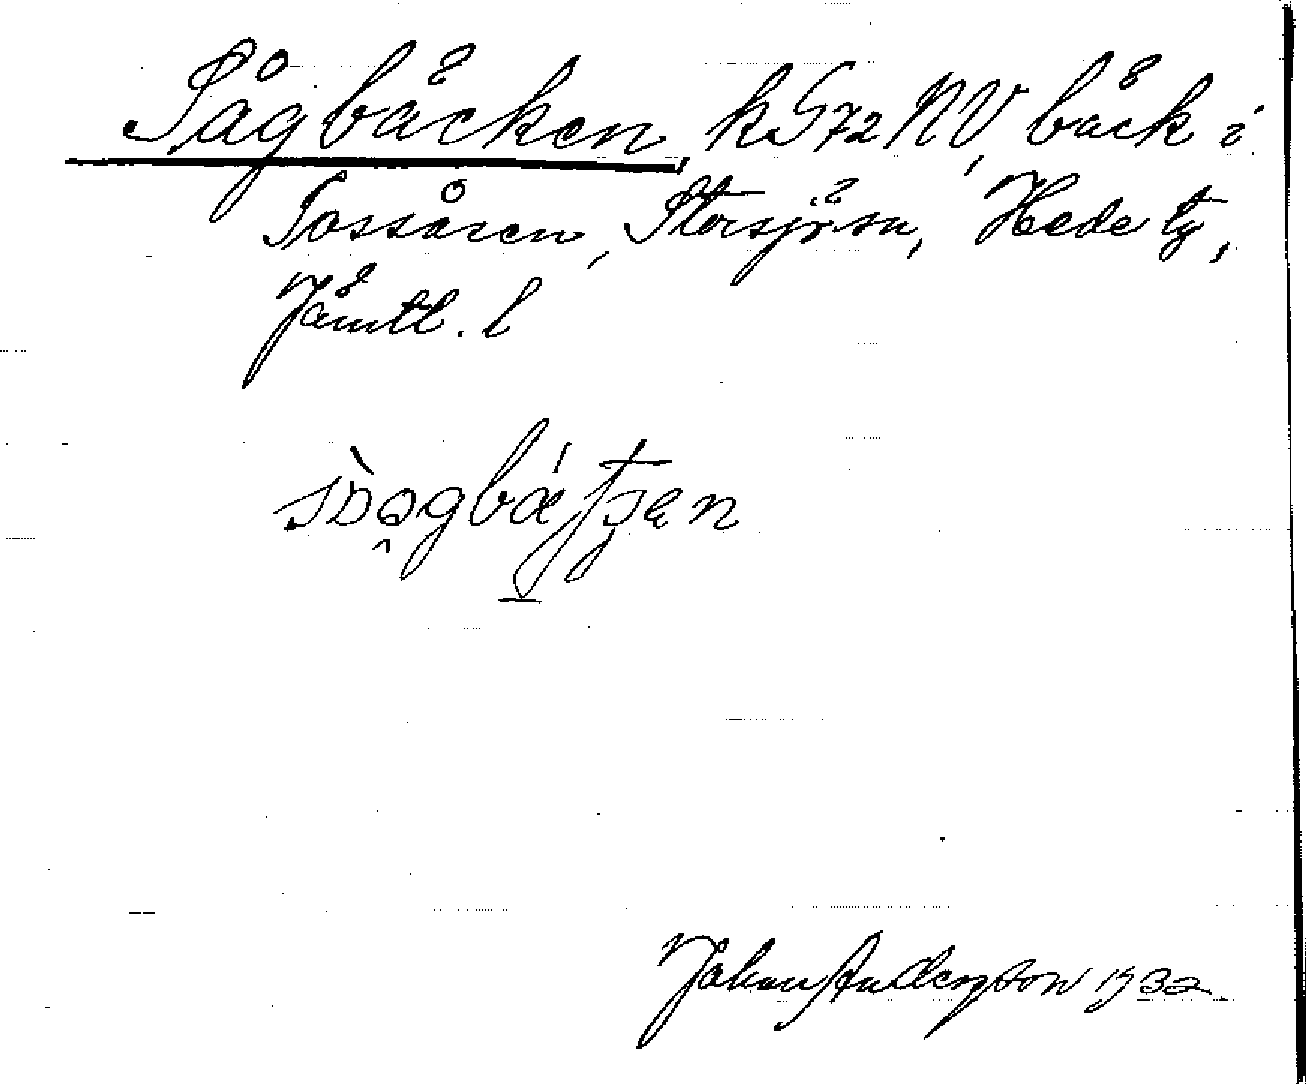 Sågbäcken, kS72NV, bäck i
Sossåsen, Storsjö sn, Hede tg,
Jämtl. l
Johan Anderson 1932